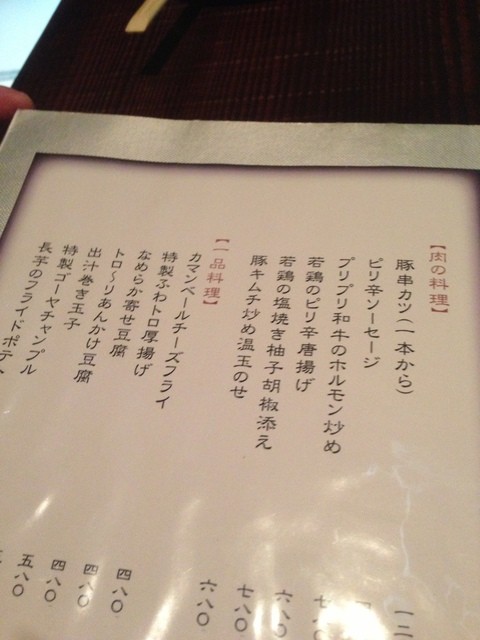 【肉の料理】
豚串カツ(一本から) 一二
ピリ辛ソーセージ
プリプリ和牛のホルモン炒め 七
若鶏のピリ辛唐揚げ 六八〇
若鶏の塩焼き柚子胡椒添え 七八〇
豚キムチ炒め温玉のせ 六八〇
【一品料理】
カマンベールチーズフライ 四八〇
特製ふわトロ厚揚げ 四八〇
なめらか寄せ豆腐 四八〇
トロ〜りあんかけ豆腐 五八〇
出汁巻き玉子
特製ゴーヤチャンプル
長芋のフライドポテ